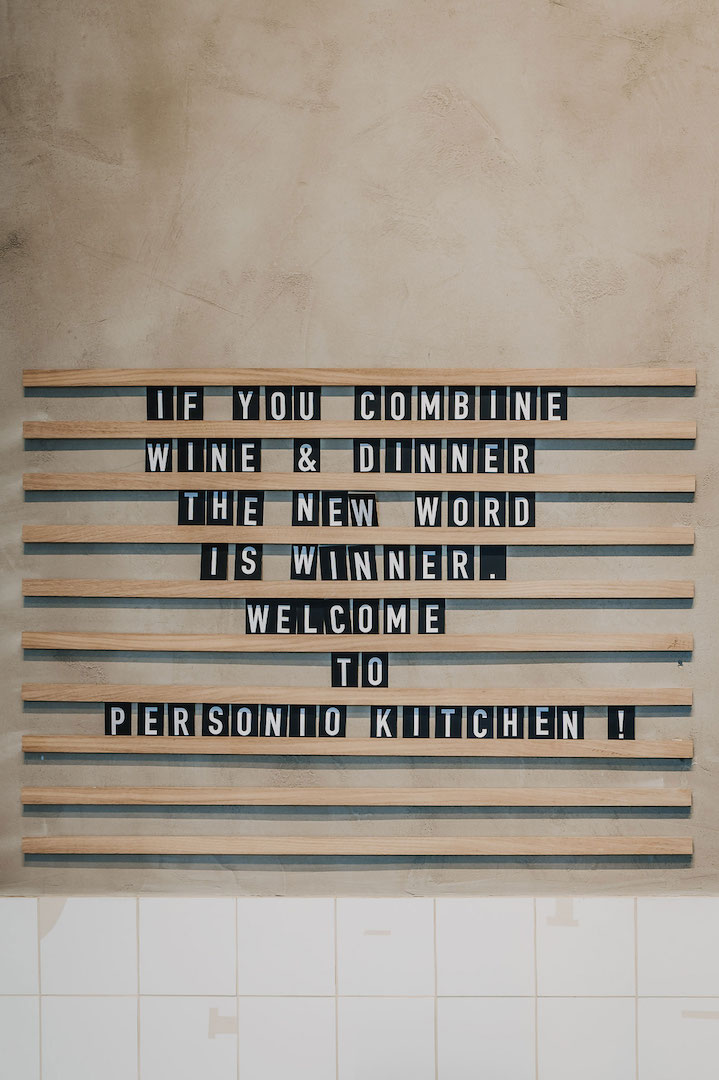 IF YOU COMBINE
WINE & DINNER
THE NEW WORD
IS WINNER.
WELCOME
TO
PERSONIO KITCHEN !